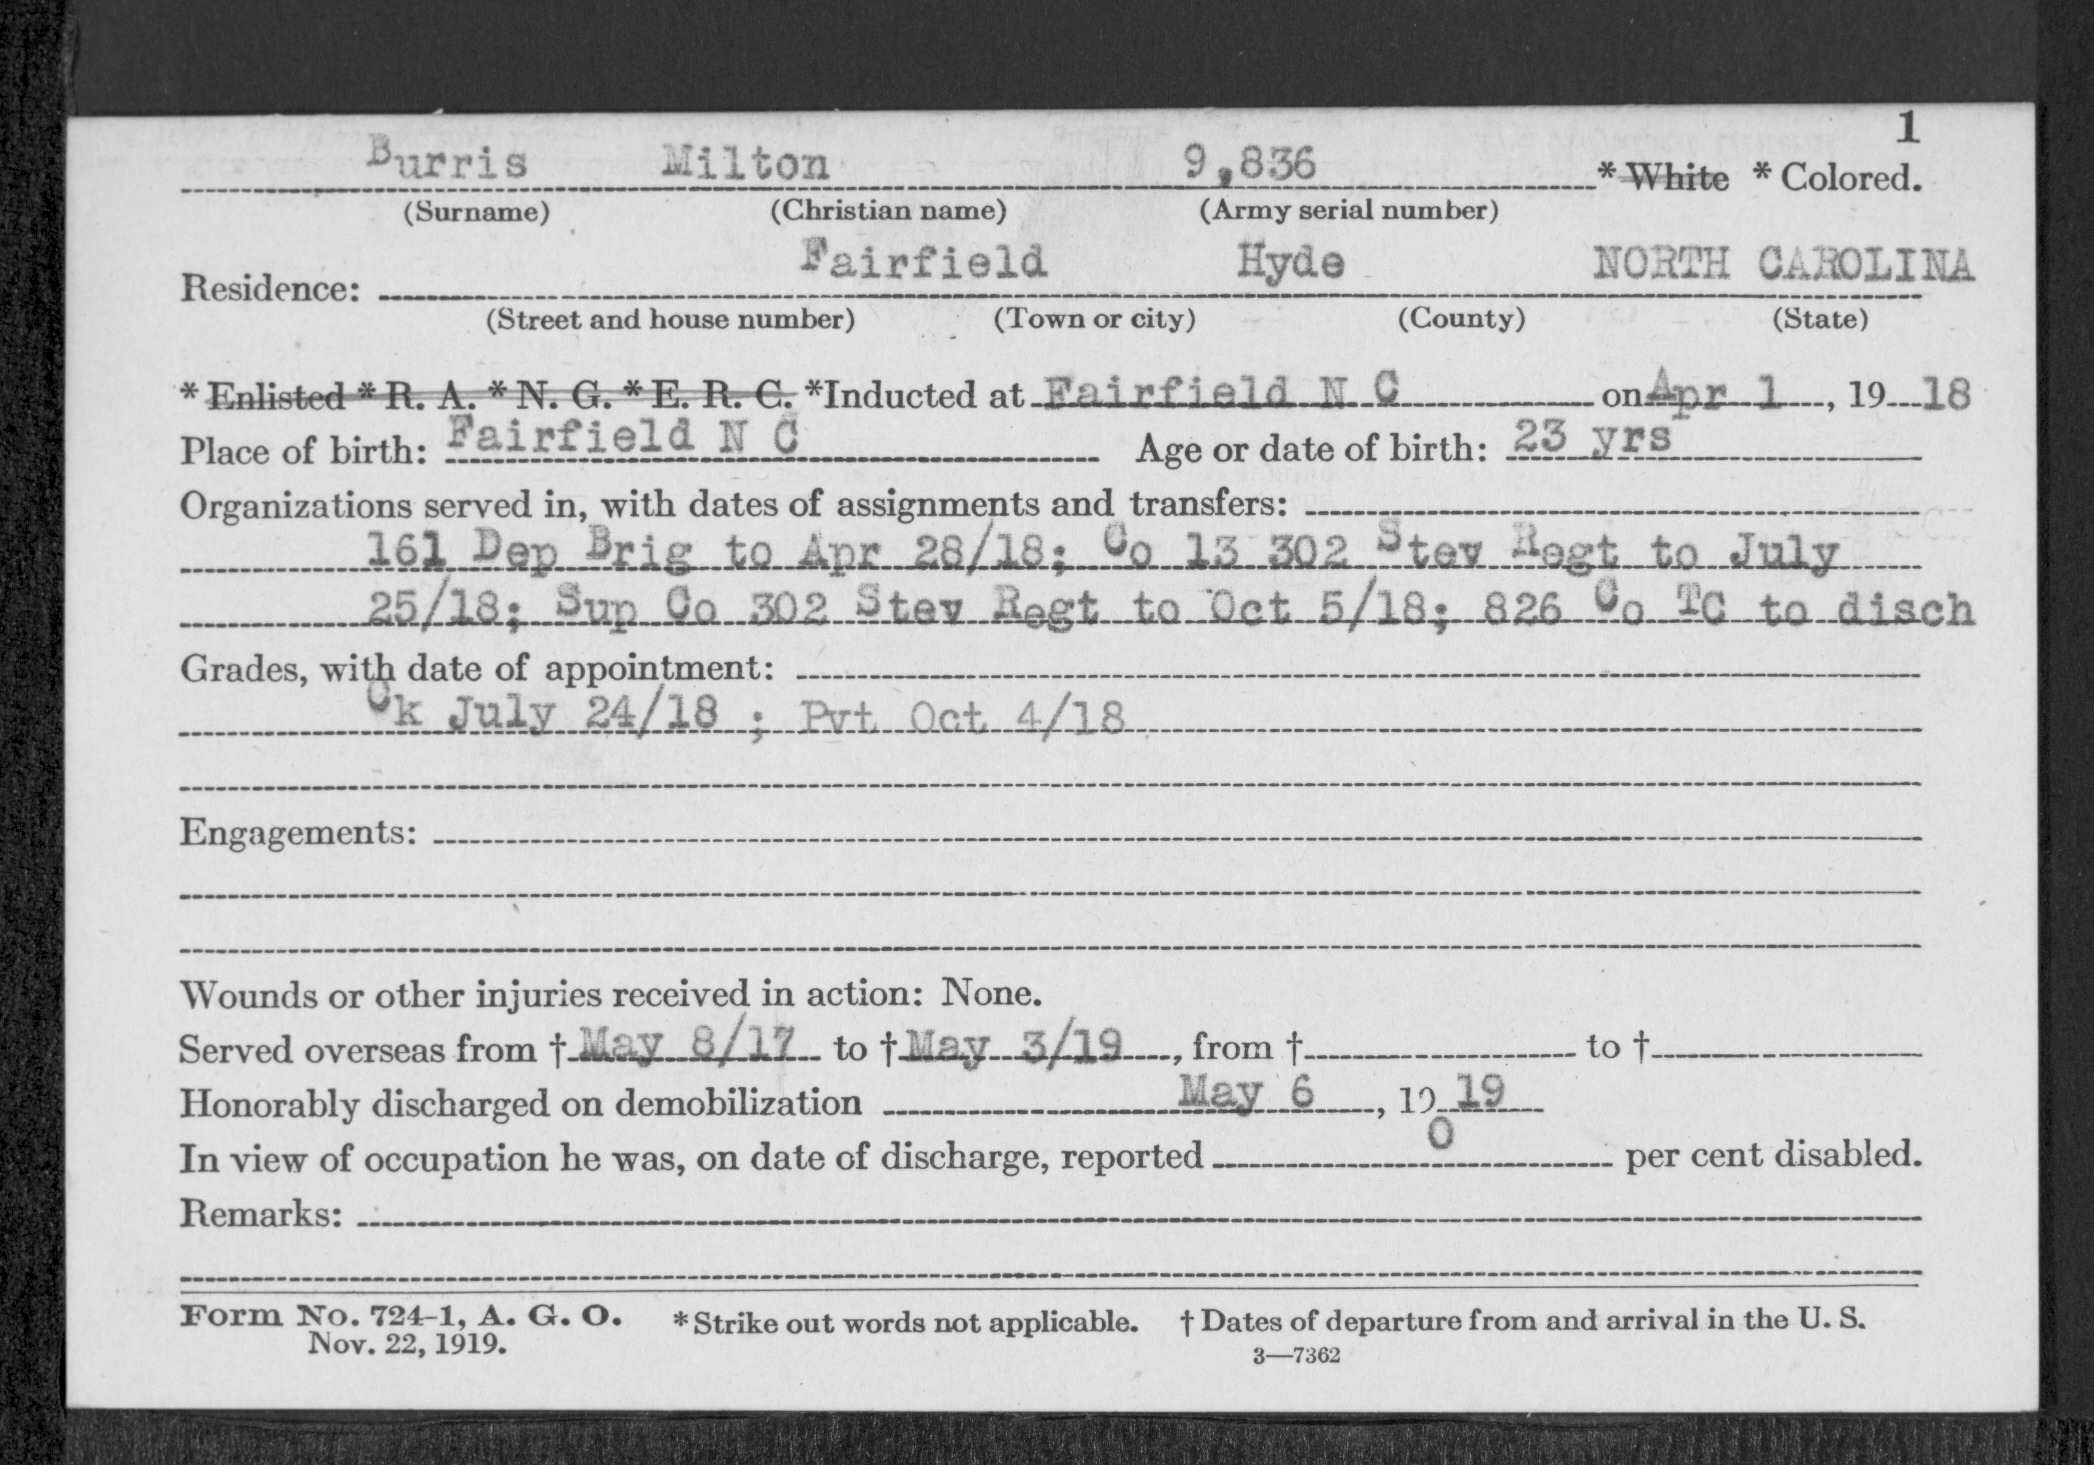 1
Burris Milton 9,836 * White * Colored.
(Surname) (Christian name) (Army serial number)
Fairfield Hyde NORTH CAROLINA
Residence:
(Street and house number) (Town or city) (County) (State)
* Enlisted * R. A. * N. G. * E. R. C. *Inducted at Fairfield N C on Apr 1, 19 18
Place of birth: Fairfield N C Age or date of birth: 23 yrs
Organizations served in, with dates of assignments and transfers:
161 Dep Brig to Apr 28/18; Co 13 302 Stev Regt to July
25/18; Sup Co 302 Stev Regt to Oct 5/18; 826 Co TC to disch
Grades, with date of appointment:
Ck July 24/18 ; Pvt Oct 4/18
Engagements:
Wounds or other injuries received in action: None.
Served overseas from † May 8/17 to † May 3/19, from † to †
Honorably discharged on demobilization May 6, 19 19
In view of occupation he was, on date of discharge, reported 0 per cent disabled.
Remarks:
Form No. 724-1, A. G. O. * Strike out words not applicable. † Dates of departure from and arrival in the U. S.
Nov. 22, 1919. 3—7362